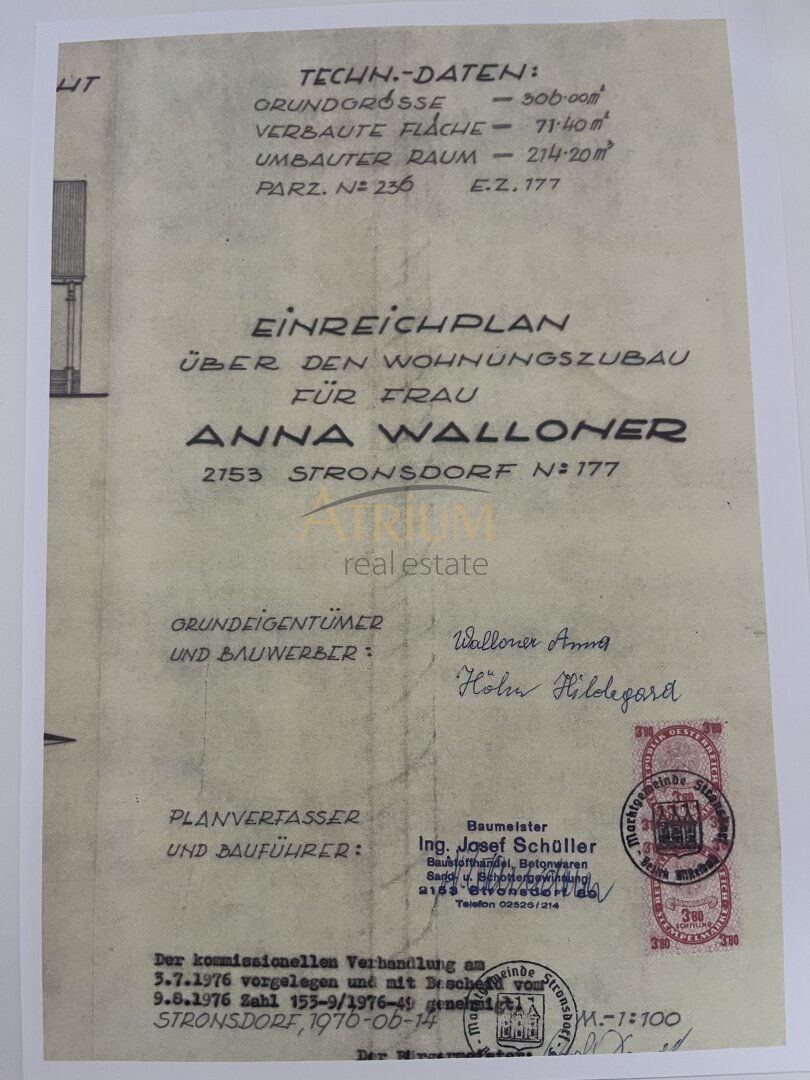 HT
TECHN.-DATEN:
GRUNDGRÖSSE – 306·00m²
VERBAUTE FLÄCHE – 71·40m²
UMBAUTER RAUM – 214·20m³
PARZ. No: 236 E.Z. 177
EINREICHPLAN
ÜBER DEN WOHNUNGSZUBAU
FÜR FRAU
ANNA WALLONER
2153 STRONSDORF No: 177
ATRIUM
real estate
GRUNDEIGENTÜMER
UND BAUWERBER:
Walloner Anna
Höhn Hildegard
3'80 3'80
REPUBLIK OESTERREICH
3'80
Marktgemeinde Stronsdorf
- Bezirk Mistelbach -
3'80
SCHILLING
STEMPELMARKE
3'80 3'80
PLANVERFASSER
UND BAUFÜHRER:
Baumeister
Ing. Josef Schüller
Baustoffhandel, Betonwaren
Sand- u. Schottergewinnung
2153 Stronsdorf 89
Telefon 02526/214
Der kommissionellen Verhandlung am
3.7.1976 vorgelegen und mit Bescheid vom
9.8.1976 Zahl 153-9/1976-49 genehmigt!
STRONSDORF, 1976-06-14 M.-1:100
Marktgemeinde Stronsdorf
Der Bürgermeister: